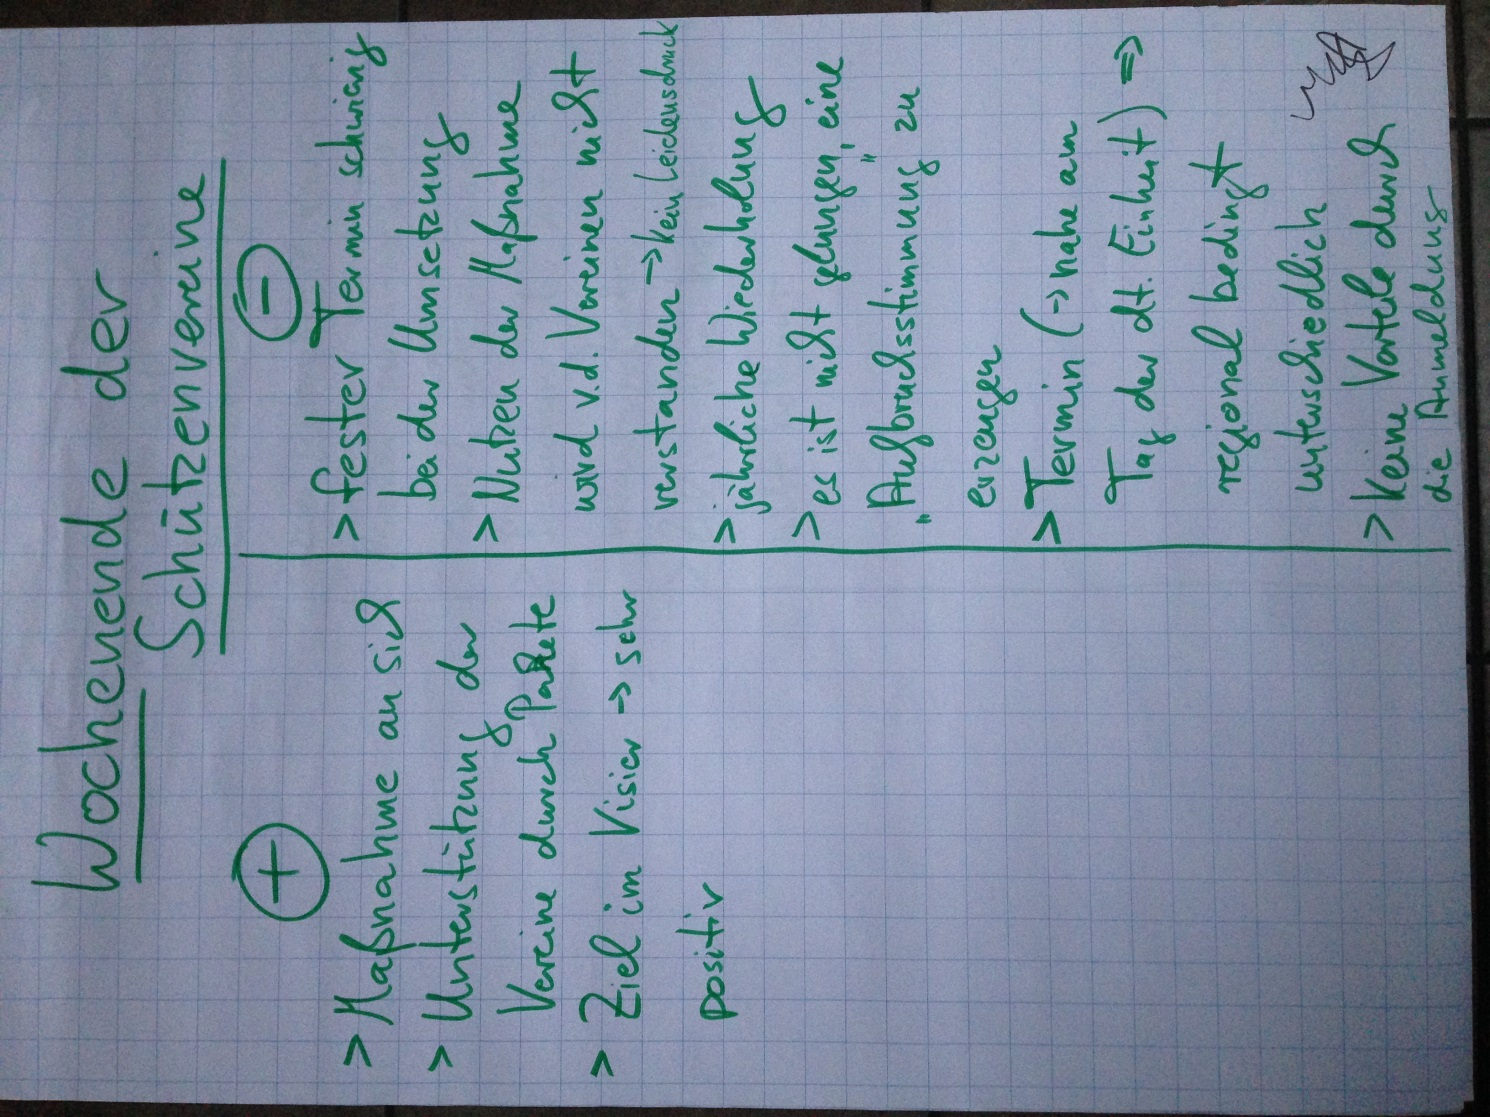 Wochenende der
Schützenvereine
+
> Maßnahme an sich
> Unterstützung der
Vereine durch Pakete
> Ziel im Visier → sehr
positiv
-
> fester Termin schwierig
bei der Umsetzung
> Nutzen der Maßnahme
wird v.d. Vereinen nicht
verstanden → kein Leidensdruck
> jährliche Wiederholung
> es ist nicht gelungen, eine
„Aufbruchsstimmung" zu
erzeugen
> Termin (→ nahe am
Tag der dt. Einheit) ⇒
regional bedingt
unterschiedlich
> keine Vorteile durch
die Anmeldung